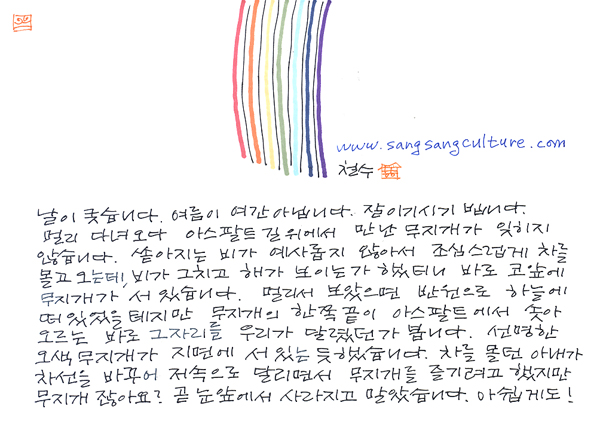 www.sangsangculture.com
철수
날이 궂습니다. 여름이 여간 아닙니다. 잘 이기시기 빕니다.
멀리 다녀오다 아스팔트 길 위에서 만난 무지개가 잊히지
않습니다. 쏟아지는 비가 예사롭지 않아서 조심스럽게 차를
몰고 오는데! 비가 그치고 해가 보이는가 했더니 바로 코앞에
무지개가 서 있습니다. 멀리서 보았으면 반원으로 하늘에
떠 있었을 테지만 무지개의 한쪽 끝이 아스팔트에서 솟아
오르는 바로 그 자리를 우리가 달렸던가 봅니다. 선명한
오색 무지개가 지면에 서 있는 듯 했습니다. 차를 몰던 아내가
차선을 바꾸어 저속으로 달리면서 무지개를 즐기려고 했지만
무지개 잖아요? 곧 눈앞에서 사라지고 말았습니다. 아쉽게도!